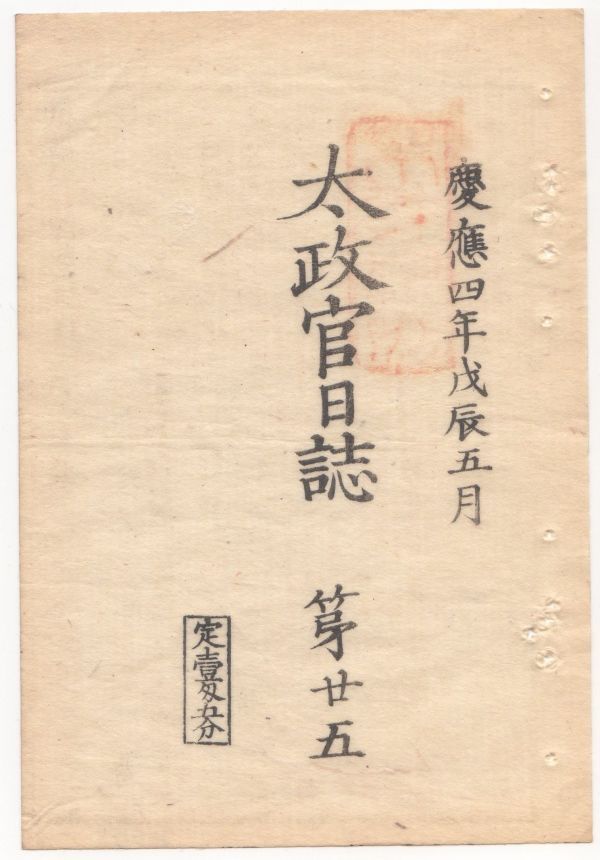 慶應四年戊辰五月
太政官日誌　第廿五
定壹匁五分